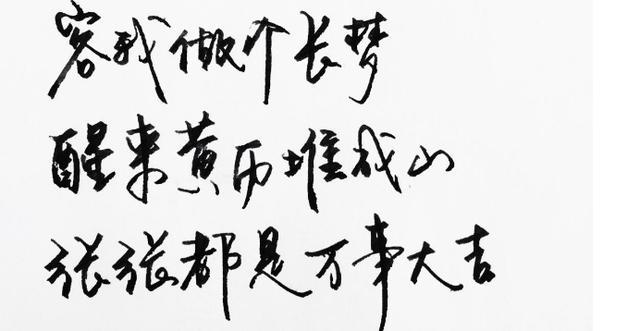 容我做个长梦
醒来黄历堆成山
张张都是万事大吉